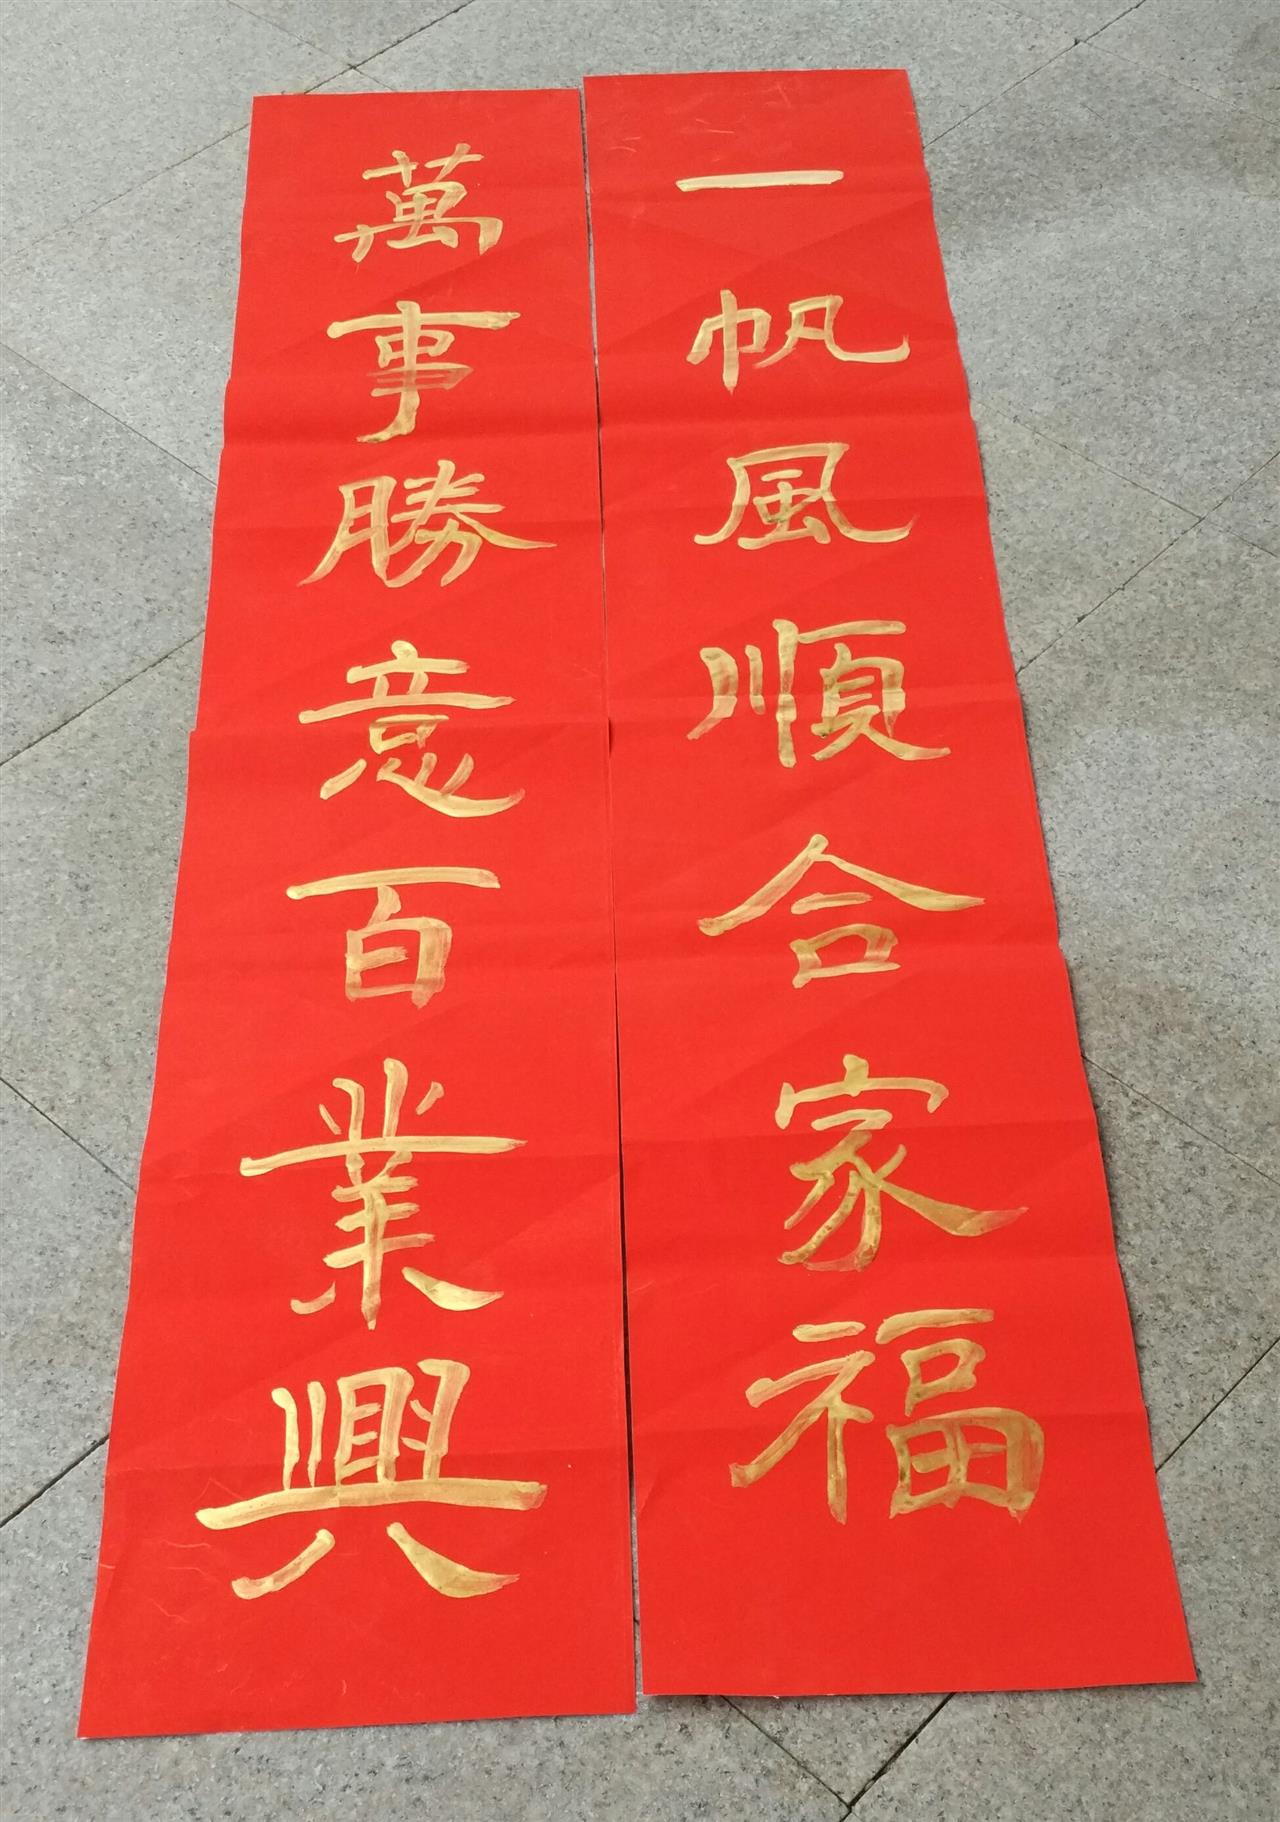 一帆風順合家福
萬事勝意百業興